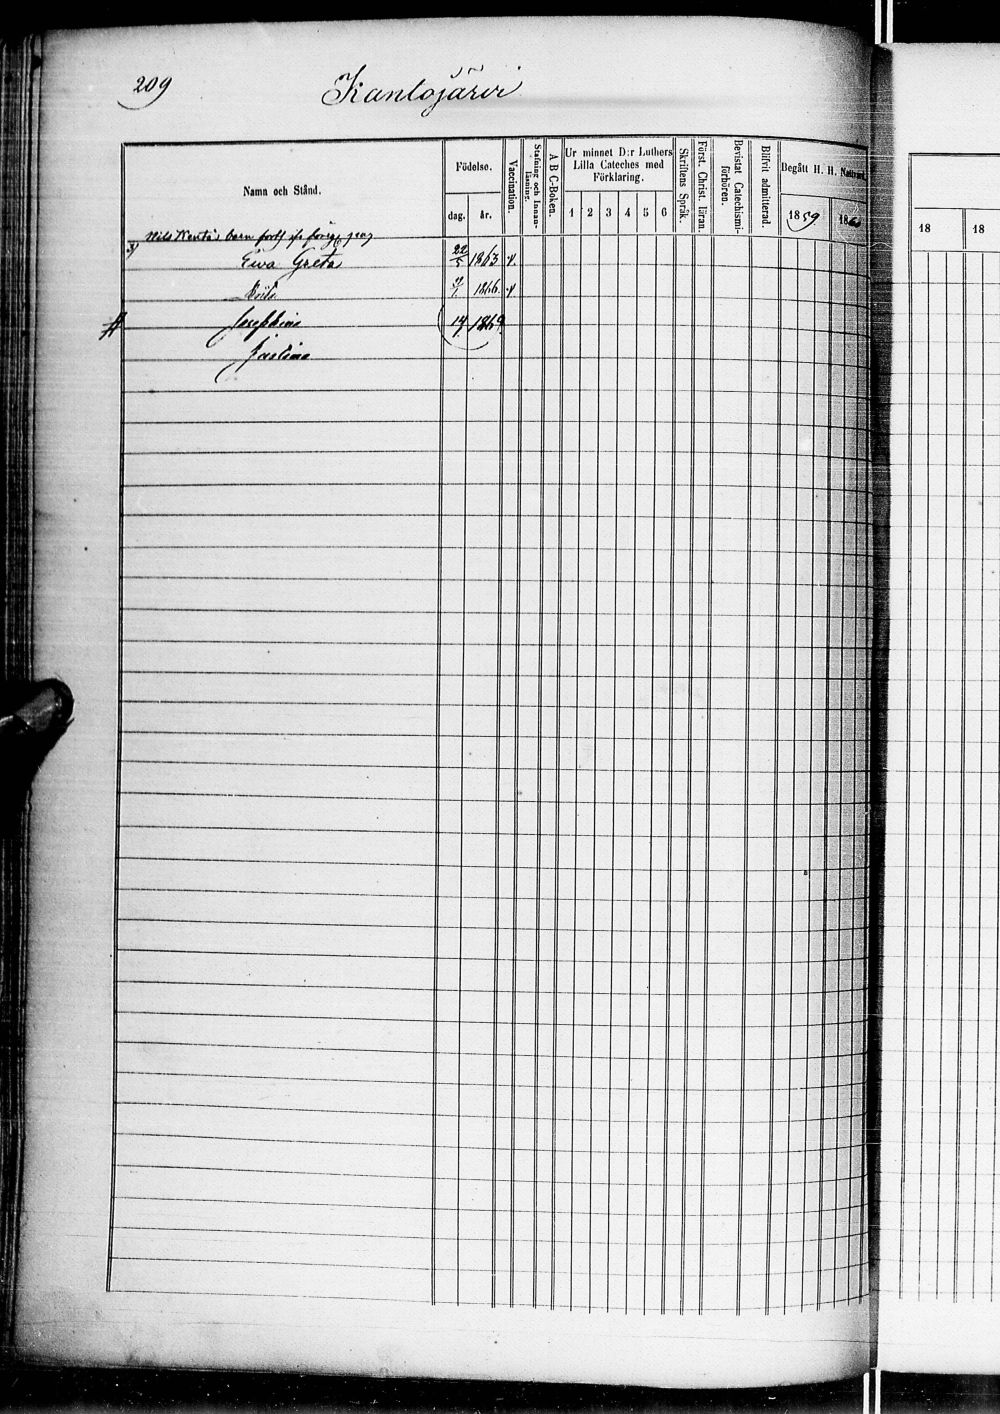 209 Kantojärvi
Namn och Stånd.
Födelse.
dag. år.
Vaccination.
Stafning och Innanläsning.
A B C-Boken.
Ur minnet D:r Luthers
Lilla Cateches med
Förklaring.
1 2 3 4 5 6
Skriftens Språk.
Först. Christ. läran.
Bevistat Catechismiförhören.
Blifvit admitterad.
Begått H. H. Nattvard.
1859 1860
18 18
barn
Ewa Greta 22/5 1863 v.
1866 v
Josephina 1869